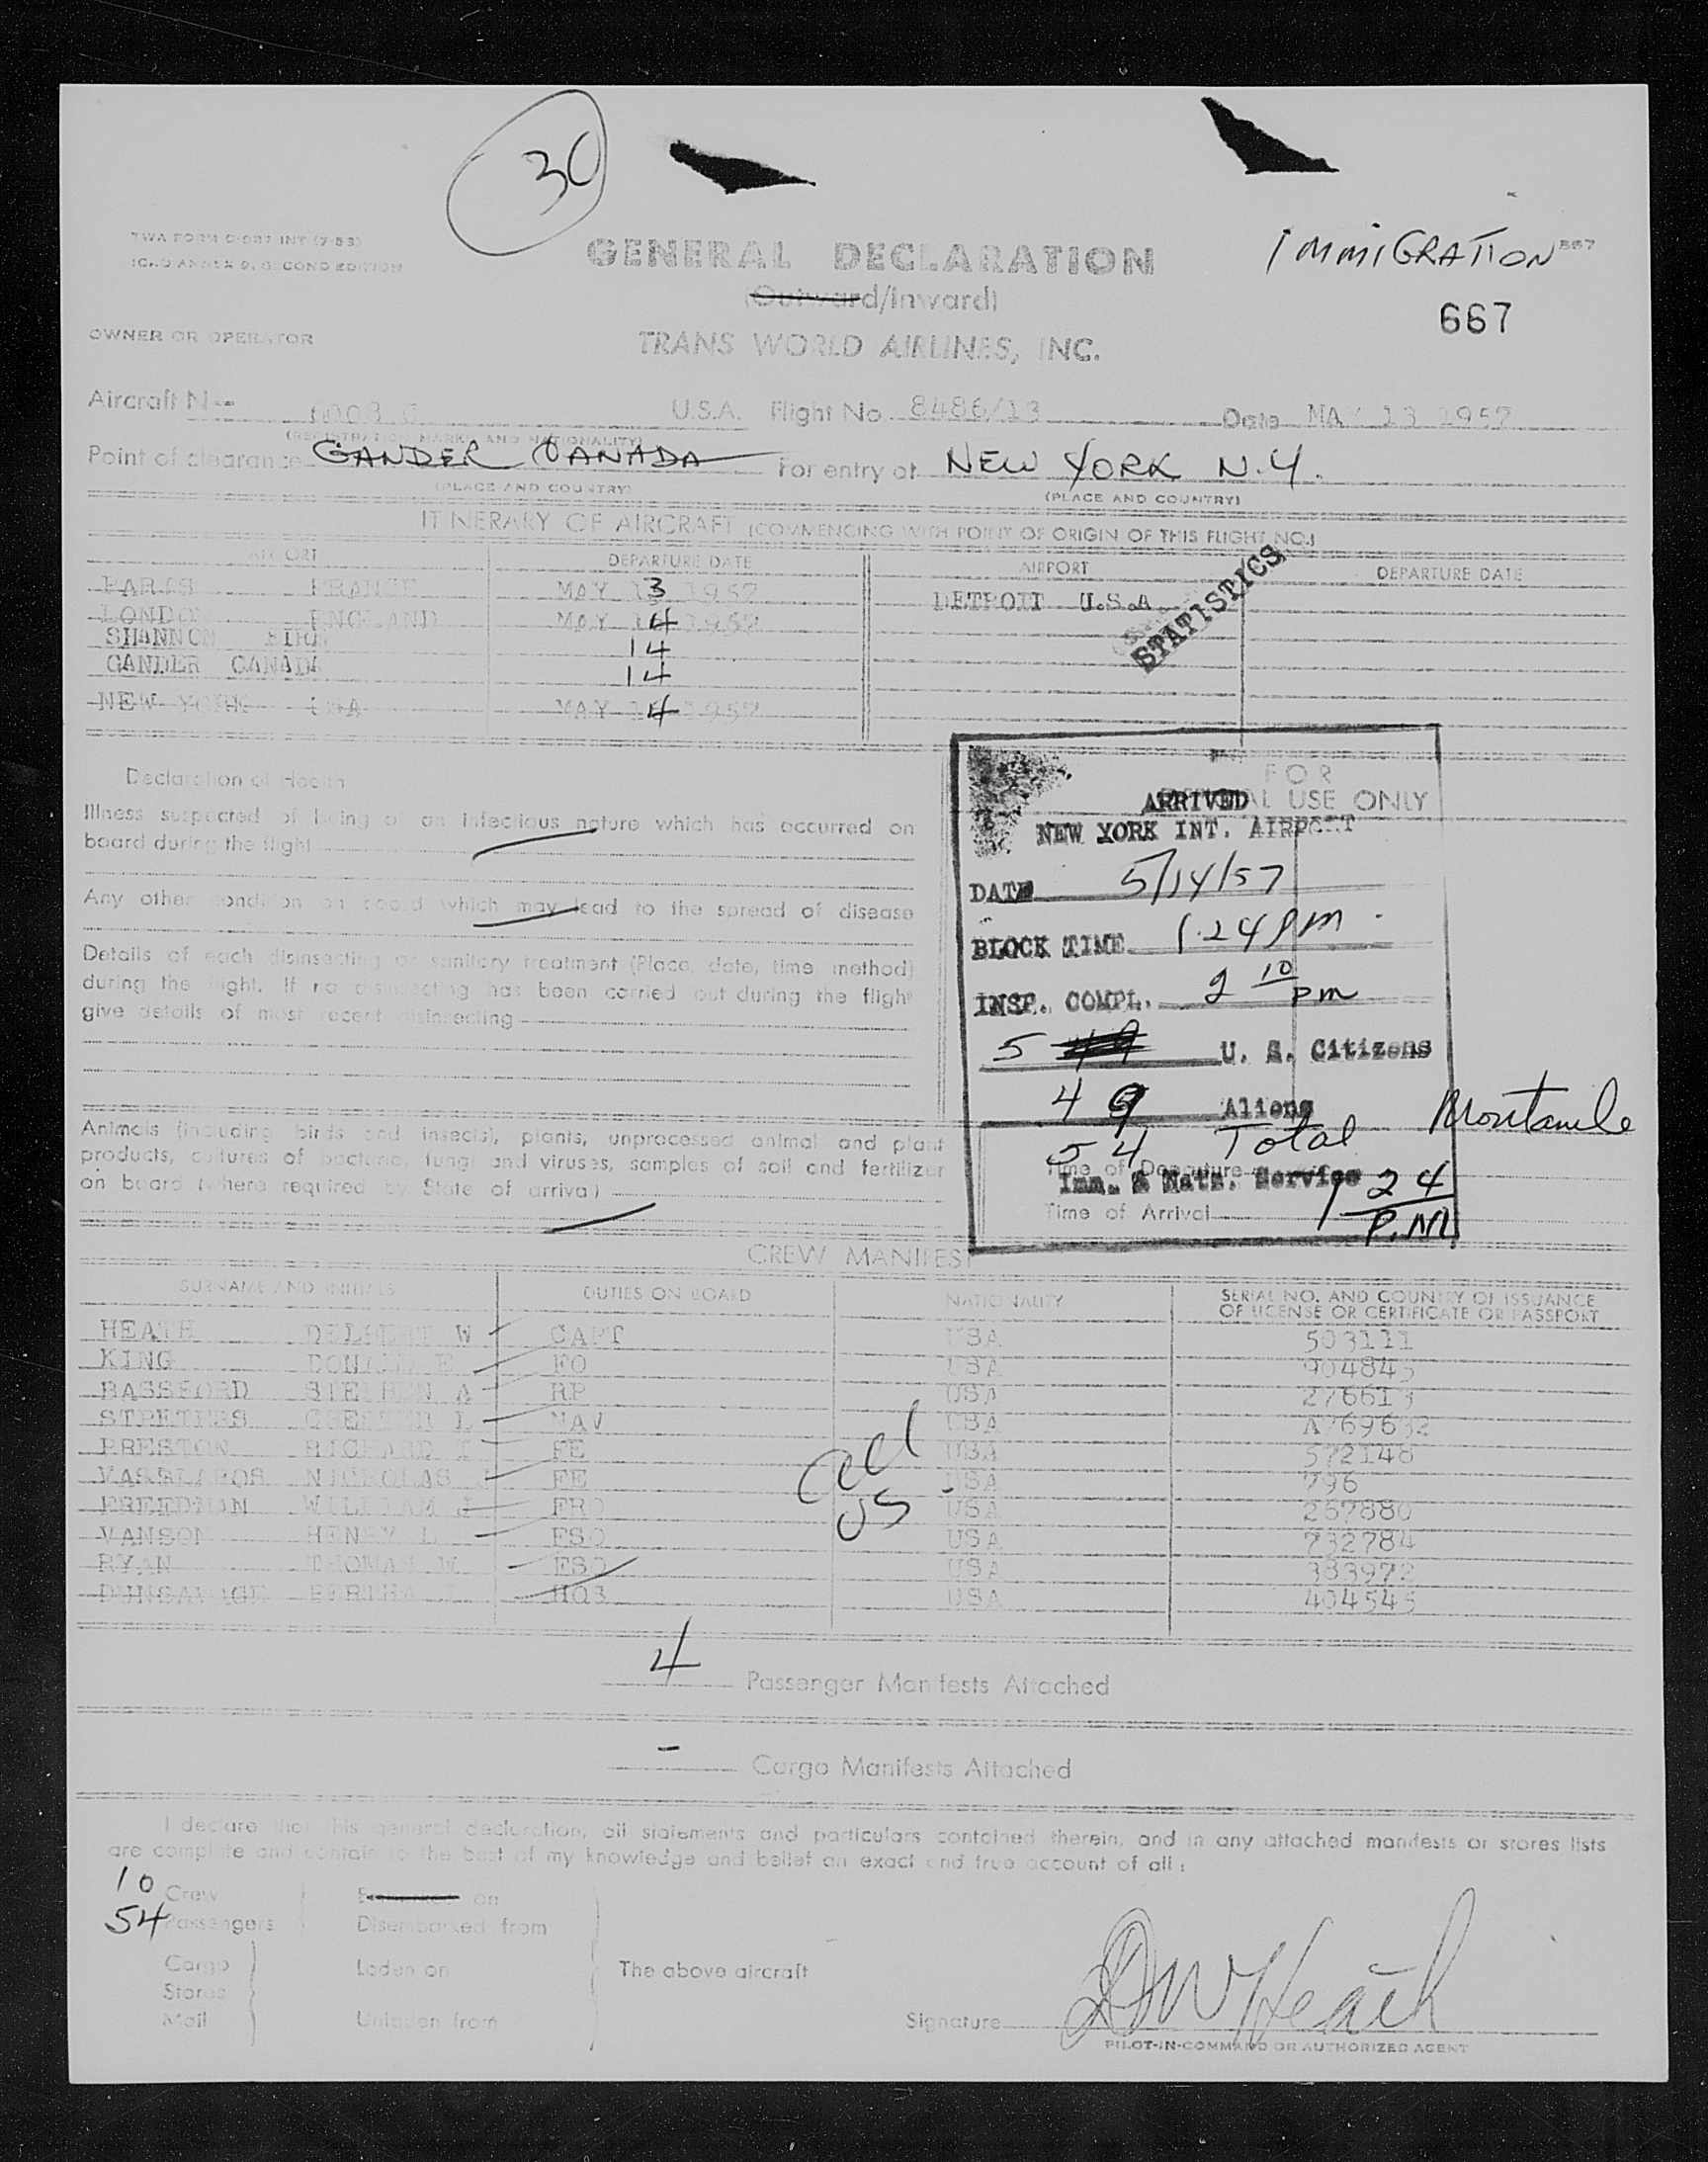 30
TWA FORM
GENERAL DECLARATION
IMMIGRATION
(Outward/Inward)
667
OWNER OR OPERATOR
TRANS WORLD AIRLINES, INC.
Aircraft U.S.A. Flight No. 8486/13 Date MAY 13 1957
(REGISTRATION MARKS AND NATIONALITY)
Point of clearance GANDER CANADA For entry at NEW YORK N.Y.
(PLACE AND COUNTRY) (PLACE AND COUNTRY)
ITINERARY OF AIRCRAFT (COMMENCING WITH POINT OF ORIGIN OF THIS FLIGHT NO.)
AIRPORT DEPARTURE DATE AIRPORT DEPARTURE DATE
PARIS FRANCE MAY 13 1957 DETROIT U.S.A
STATISTICS
LONDON ENGLAND MAY 14 1957
SHANNON EIRE 14
GANDER CANADA 14
NEW YORK USA MAY 14 1957
Declaration of Health
FOR
USE ONLY
ARRIVED
NEW YORK INT. AIRPORT
Illness suspected of being of an infectious nature which has occurred on
board during the flight
DATE 5/14/57
Any other condition on board which may lead to the spread of disease
BLOCK TIME 1.24 PM
Details of each disinsecting or sanitary treatment (Place, date, time method)
during the flight. If no disinsecting has been carried out during the flight
give details of most recent disinsecting
INSP. COMPL. 2 10 pm
5 U. S. Citizens
49 Aliens
54 Total
Animals (including birds and insects), plants, unprocessed animal and plant
products, cultures of bacteria, fungi and viruses, samples of soil and fertilizer
on board (where required by State of arrival)
Time of Departure
Imm. & Natz. Service
Time of Arrival 1 24 P.M.
CREW MANIFEST
SURNAME AND INITIALS DUTIES ON BOARD NATIONALITY SERIAL NO. AND COUNTRY OF ISSUANCE
OF LICENSE OR CERTIFICATE OR PASSPORT
HEATH DELBERT W CAPT USA 503111
KING DONALD FO USA 904845
BASSFORD STEPHEN A RP USA 276613
CHESTER L NAV USA A769632
PRESTON RICHARD FE USA 572148
NICHOLAS FE USA 796
FREEDMAN WILLIAM J FRO USA 267880
VANSON HENRY L FSO USA 732784
RYAN THOMAS W FSO USA 383972
DUNSAVAGE BERTHA HOS USA 404545
all
US
4 Passenger Manifests Attached
- Cargo Manifests Attached
I declare that this general declaration, all statements and particulars contained therein, and in any attached manifests or stores lists
are complete and contain to the best of my knowledge and belief an exact and true account of all:
10 Crew on
54 Passengers Disembarked from
Cargo Laden on The above aircraft
Stores
Mail Unladen from
Signature DW Heath
PILOT-IN-COMMAND OR AUTHORIZED AGENT